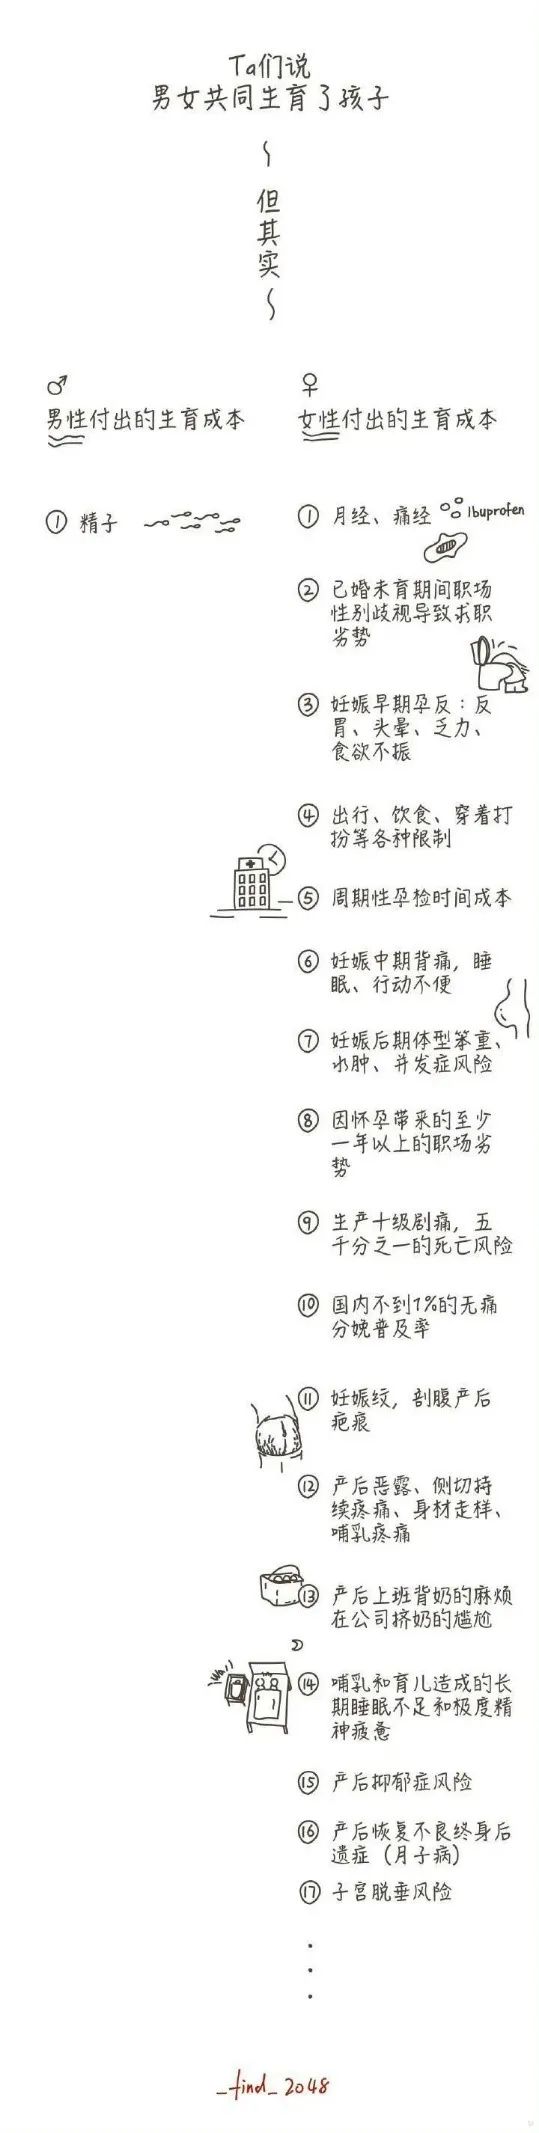 Ta们说
男女共同生育了孩子
但其实
男性付出的生育成本
女性付出的生育成本
① 精子
① 月经、痛经 Ibuprofen
② 已婚未育期间职场
性别歧视导致求职
劣势
③ 妊娠早期孕反：反
胃、头晕、乏力、
食欲不振
④ 出行、饮食、穿着打
扮等各种限制
⑤ 周期性孕检时间成本
⑥ 妊娠中期背痛，睡
眠、行动不便
⑦ 妊娠后期体型笨重、
水肿、并发症风险
⑧ 因怀孕带来的至少
一年以上的职场劣
势
⑨ 生产十级剧痛，五
千分之一的死亡风险
⑩ 国内不到1%的无痛
分娩普及率
⑪ 妊娠纹，剖腹产后
疤痕
⑫ 产后恶露、侧切持
续疼痛、身材走样、
哺乳疼痛
⑬ 产后上班背奶的麻烦
在公司挤奶的尴尬
Wa
⑭ 哺乳和育儿造成的长
期睡眠不足和极度精
神疲惫
⑮ 产后抑郁症风险
⑯ 产后恢复不良终身后
遗症（月子病）
⑰ 子宫脱垂风险
_find_2048